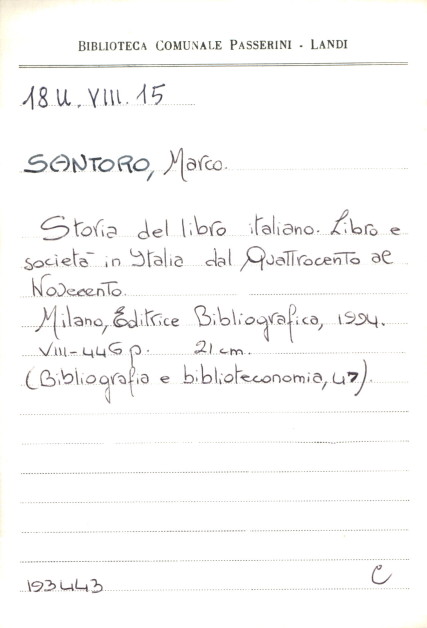 BIBLIOTECA COMUNALE PASSERINI - LANDI
18 U. VIII. 15
SANTORO, Marco.
Storia del libro italiano. Libro e
società in Italia dal Quattrocento al
Novecento.
Milano, Editrice Bibliografica, 1994.
VIII-446 p. 21 cm.
(Bibliografia e biblioteconomia, 47).
193443 C